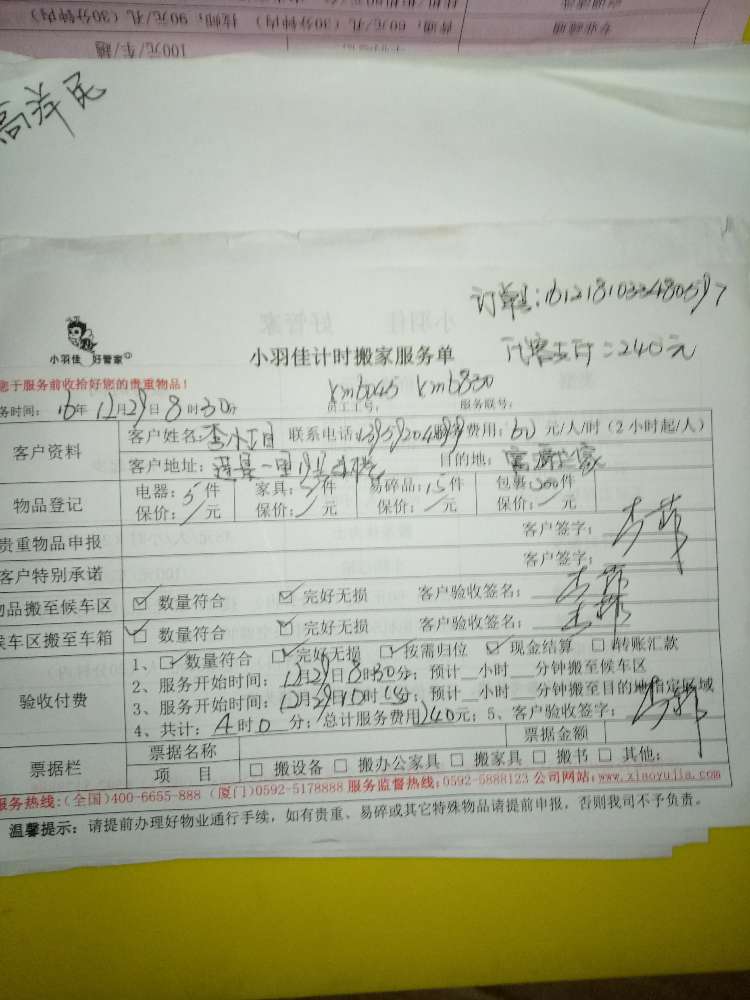 高
订单号:
小羽佳 好管家
小羽佳计时搬家服务单
代客支付:240元
您于服务前收拾好您的贵重物品!
xm6045 xm6830
务时间: 16年12月29日8时30分 员工工号: 服务联号:
客户资料
客户姓名: 联系电话: 服务费用:60元/人/时(2小时起/人)
客户地址: 目的地:
物品登记
电器:5件 家具:5件 易碎品:15件 包裹:300件
保价:/元 保价:/元 保价:/元 保价:/元
贵重物品申报 客户签字:
客户特别承诺 客户签字:
物品搬至候车区 ☑ 数量符合 ☑ 完好无损 客户验收签名:
候车区搬至车箱 ☑ 数量符合 ☑ 完好无损 客户验收签名:
验收付费
1、☑数量符合 ☑完好无损 ☑按需归位 ☑现金结算 □转账汇款
2、服务开始时间:12月29日8时30分; 预计__小时__分钟搬至候车区
3、服务开始时间:12月29日10时 分; 预计__小时__分钟搬至目的地指定区域
4、共计:4时0分;总计服务费用240元; 5、客户验收签字:
票据栏
票据名称 票据金额
项 目 □ 搬设备 □ 搬办公家具 □ 搬家具 □ 搬书 □ 其他:
服务热线:(全国)400-6655-888 (厦门)0592-5178888 服务监督热线:0592-5888123 公司网站:www.xiaoyujia.com
温馨提示: 请提前办理好物业通行手续, 如有贵重、易碎或其它特殊物品请提前申报, 否则我司不予负责。